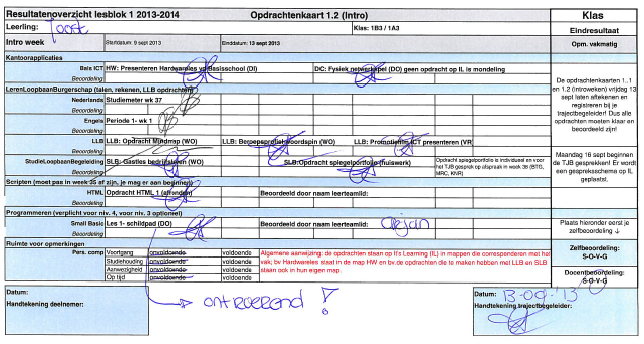 Resultatenoverzicht lesblok 1 2013-2014 Opdrachtenkaart 1.2 (Intro) Klas
Leerling: Joost Klas: 1B3 / 1A3 Eindresultaat
Intro week Startdatum: 9 sept 2013 Einddatum: 13 sept 2013 Opm. vakmatig
Kantoorapplicaties
Basis ICT HW: Presenteren Hardwareles vo Basisschool (DI) DC: Fysiek netwerkapel (DO) geen opdracht op IL is mondeling
Beoordeling
LerenLoopbaanBurgerschap (talen, rekenen, LLB opdrachten)
Nederlands Studiemeter wk 37
Beoordeling
Engels Periode 1- wk 1
Beoordeling
LLB LLB: Opdracht Mindmap (WO) LLB: Beroepsprofielwoordspin (WO) LLB: Promotiemix ICT presenteren (VR)
Beoordeling
StudieLoopbaanBegeleiding SLB: Gastles bedrijfsleven (WO) SLB: Opdracht spiegelportfolio (huiswerk) Opdracht spiegelportfolio is individueel en voor
het TJB gesprek op afspraak in week 38 (BTG,
MRC, KNR)
Beoordeling
Scripten (moet pas in week 35 af zijn, je mag er aan beginnen)
HTML Opdracht HTML 1 (afronden) Beoordeeld door naam leerteamlid:
Beoordeling
Programmeren (verplicht voor niv. 4, voor niv. 3 optioneel)
Small Basic Les 1- schildpad (DO) Beoordeeld door naam leerteamlid: Arjan
Beoordeling
Ruimte voor opmerkingen
Pers. comp Voortgang onvoldoende voldoende
Studiehouding onvoldoende voldoende
Aanwezigheid onvoldoende voldoende
Op tijd onvoldoende voldoende
Algemene aanwijzing: de opdrachten staan op It's Learning (IL) in mappen die corresponderen met het
vak; bv Hardwareles staat in de map HW en bv.de opdrachten die te maken hebben met LLB en SLB
staan ook in hun eigen map.
De opdrachtenkaarten 1..1
en 1.2 (introweken) vrijdag 13
sept laten aftekenen en
registreren bij je
trajectbegeleider! Dus alle
opdrachten moeten klaar en
beoordeeld zijn!
Maandag 16 sept beginnen
de TJB gesprekken! Er wordt
een gespreksschema op IL
geplaatst.
Plaats hieronder eerst je
zelfbeoordeling ↓
Zelfbeoordeling:
S-O-V-G
Docentbeoordeling:
S-O-V-G
Datum:
Handtekening deelnemer:
ontroerend !
Datum: 13-09-'13
Handtekening trajectbegeleider: